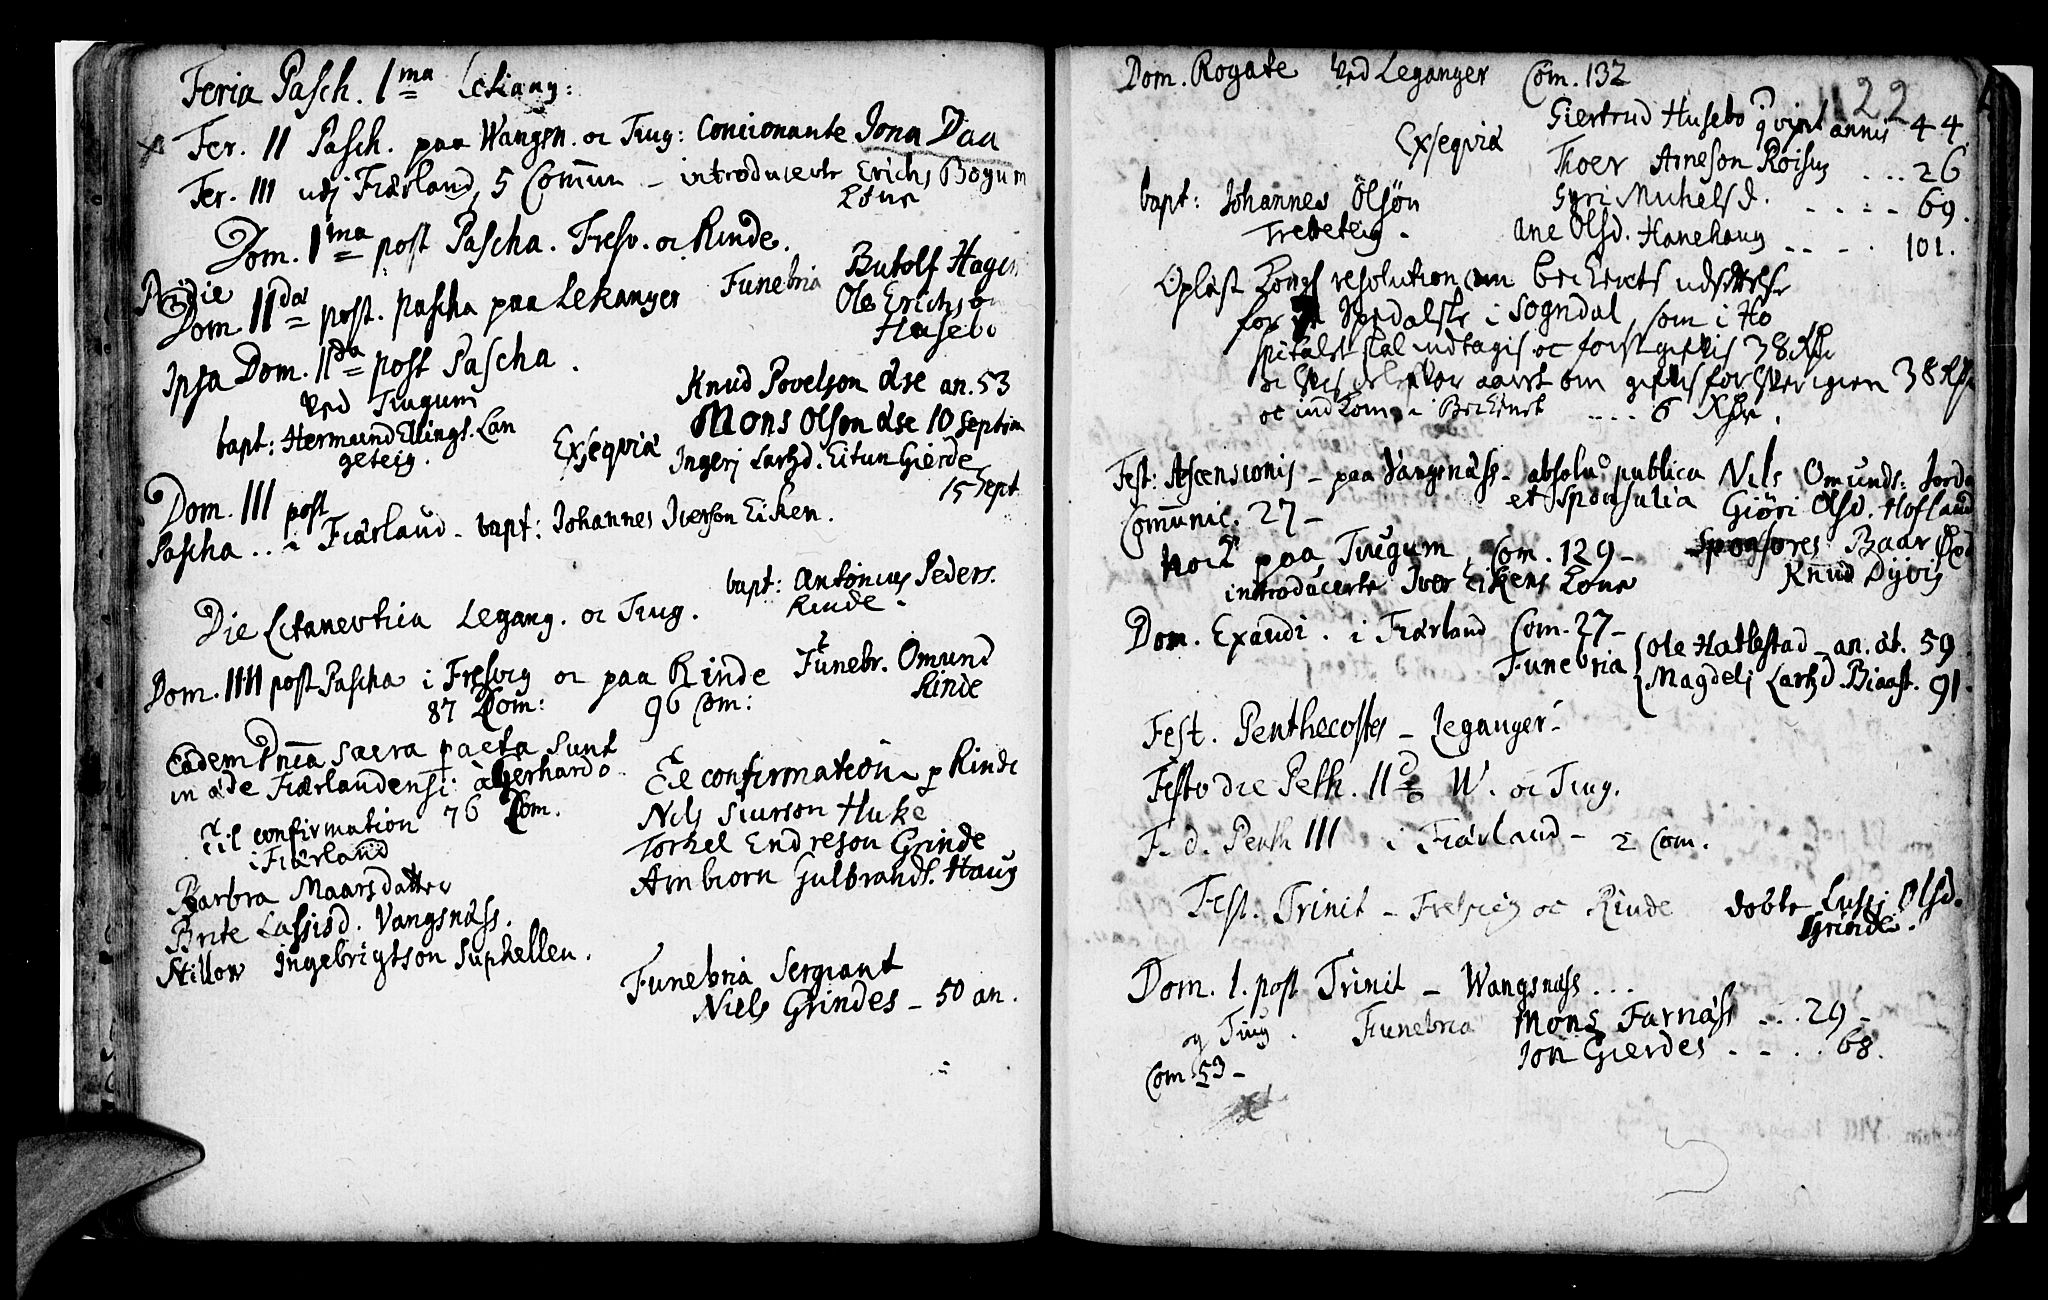 Feria Pasch. 1ma Lekang:
Fer. II Pasch. paa Wangsn. oc Tiug: concionante Jona Daa
Fer. III udj Fiærland, 5 Comun - introducerte Erichs Bøyum
Kone
Dom. 1ma post Pascha. Fresv. oc Rinde.
Pridie
Dom. IIda post. pascha paa Lekanger Funebria Butolf Hagen
Ole Erichson
Husebo
Ipsa Dom. IIda post Pascha.
ved Tiugum
bapt: Hermund Ellings. Lan
geteig.
Exseqviæ
Knud Povelson Øse an. 53
Mons Olson Øse 10 Septim
Ingerj Larsd. Eitun Gierde
15 Sept
Dom. III post
Pascha .. i Fiærland - bapt: Johannes Iverson Eiken.
Die Litanevtica Legang. oc Tiug.
bapt: Antonius Peders.
Rinde.
Dom. IIII post Pascha i Fresvig oc paa Rinde Funebr. Omund
Rinde
87 Com: 96 Com:
Eadem Dnica sacra pacta sunt
in æde Fiærlandensi à Gerhardo
76 Com.
Til confirmation
i Fiærland
Barbra Maarsdatter
Brite Lassisd. Vangsnæss.
Stillow Ingebrigtson Suphellen.
Til confirmation p Rinde
Nils Siurson Huke
Torkel Endreson Grinde
Arnbiorn Gulbrands. Haug
Funebria Sergiant
Niels Grindes - 50 an.
22
Dom. Rogate ved Leganger Com. 132
Exseqviæ
Giertrud Husebo qvinl annis 44
Thoer Arneson Roisug ... 26
Gyri Michelsd. .... 69.
Ane Olsd. Hanehaug .... 101.
bapt: Johannes Olsøn
Tretteteig.
Oplæst Kongl resolution om beckenets udsettelse
for Spedalske i Sogndal, som i Ho
spitalet skal indtagis oc forst giftis 38 Rdr
aart om giftis for 38 Rdr
oc indkom i Beckenet .... 6 Rdr.
Fest: Ascensionis - paa Vangsnæss - absolu publica Nils Omunds: Jorda
et sponsalia Giøri Olsd. Hofland
Comunic. 27 -
paa Tiugum Com. 129 - Sponsores Baar
Knud Dyvig
introducerte Iver Eikens Kone
Dom. Exaudi. i Fiærland Com. 27 -
Funebria Ole Hatlestad - an. æt. 59
Magdelj Larsd. Biaast. 91.
Fest. Penthecostes - Leganger -
Festo die Peth. IIdo W. oc Tiug.
F. d. Penth III i Fiærland - 2 Com.
Fest. Trinit - Fresvig oc Rinde døbte Lussj Olsd.
Grinde.
Dom. 1. post Trinit - Wangsnæss ...
og Tiug. Funebria Mons Farnæss ... 29 -
Jon Gierdes .... 68.
Com. 53 -